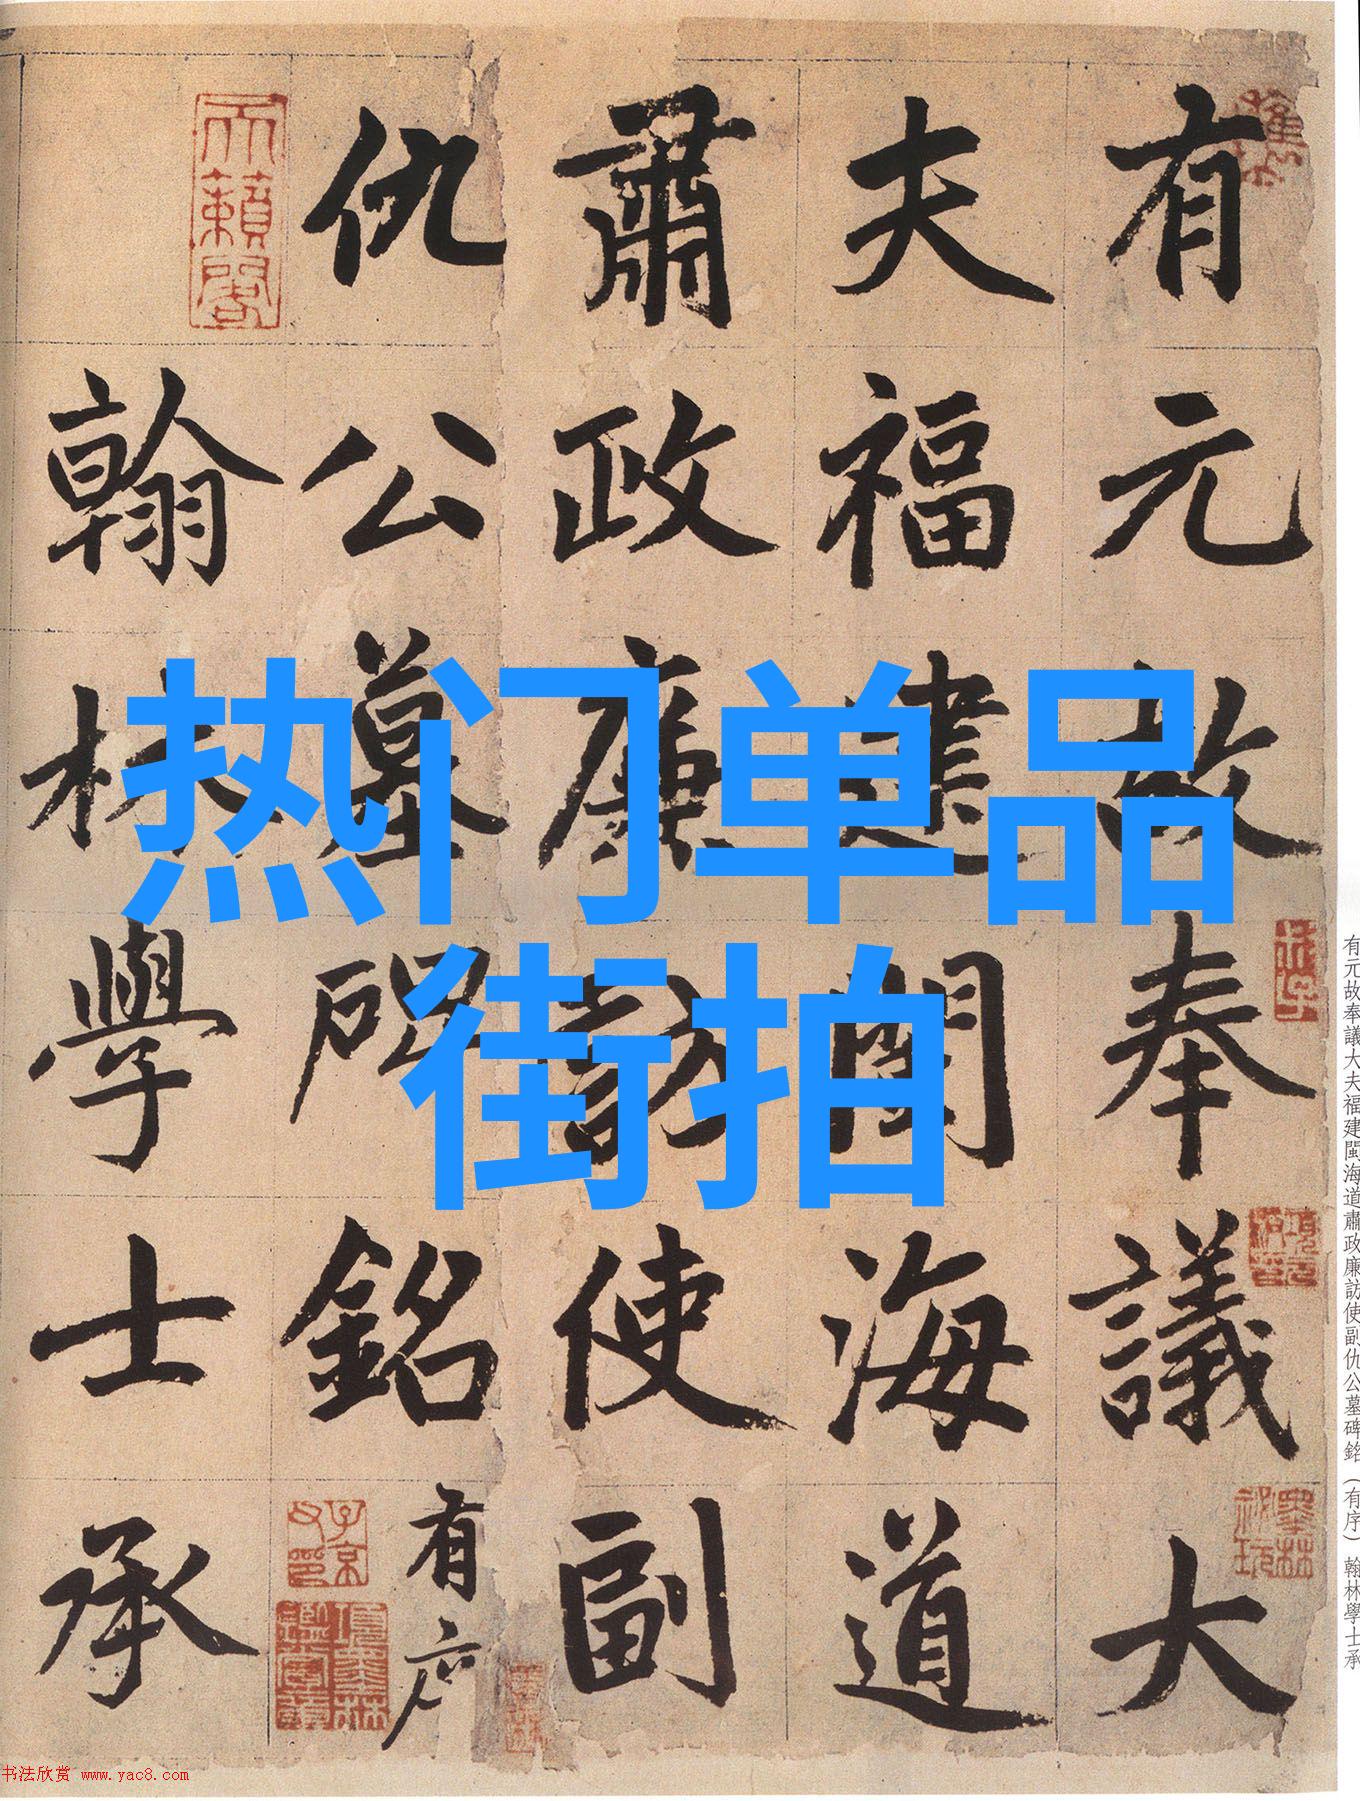 有元故奉議大
夫福建閩海道
肅政廉訪使副
仇公墓碑銘有序
翰林學士承
热门单品
街拍
天籟閣
子京
項元汴印
墨林祕玩
有元故奉議大夫福建閩海道肅政廉訪使副仇公墓碑銘（有序）翰林學士承
书法欣赏 www.yac8.com